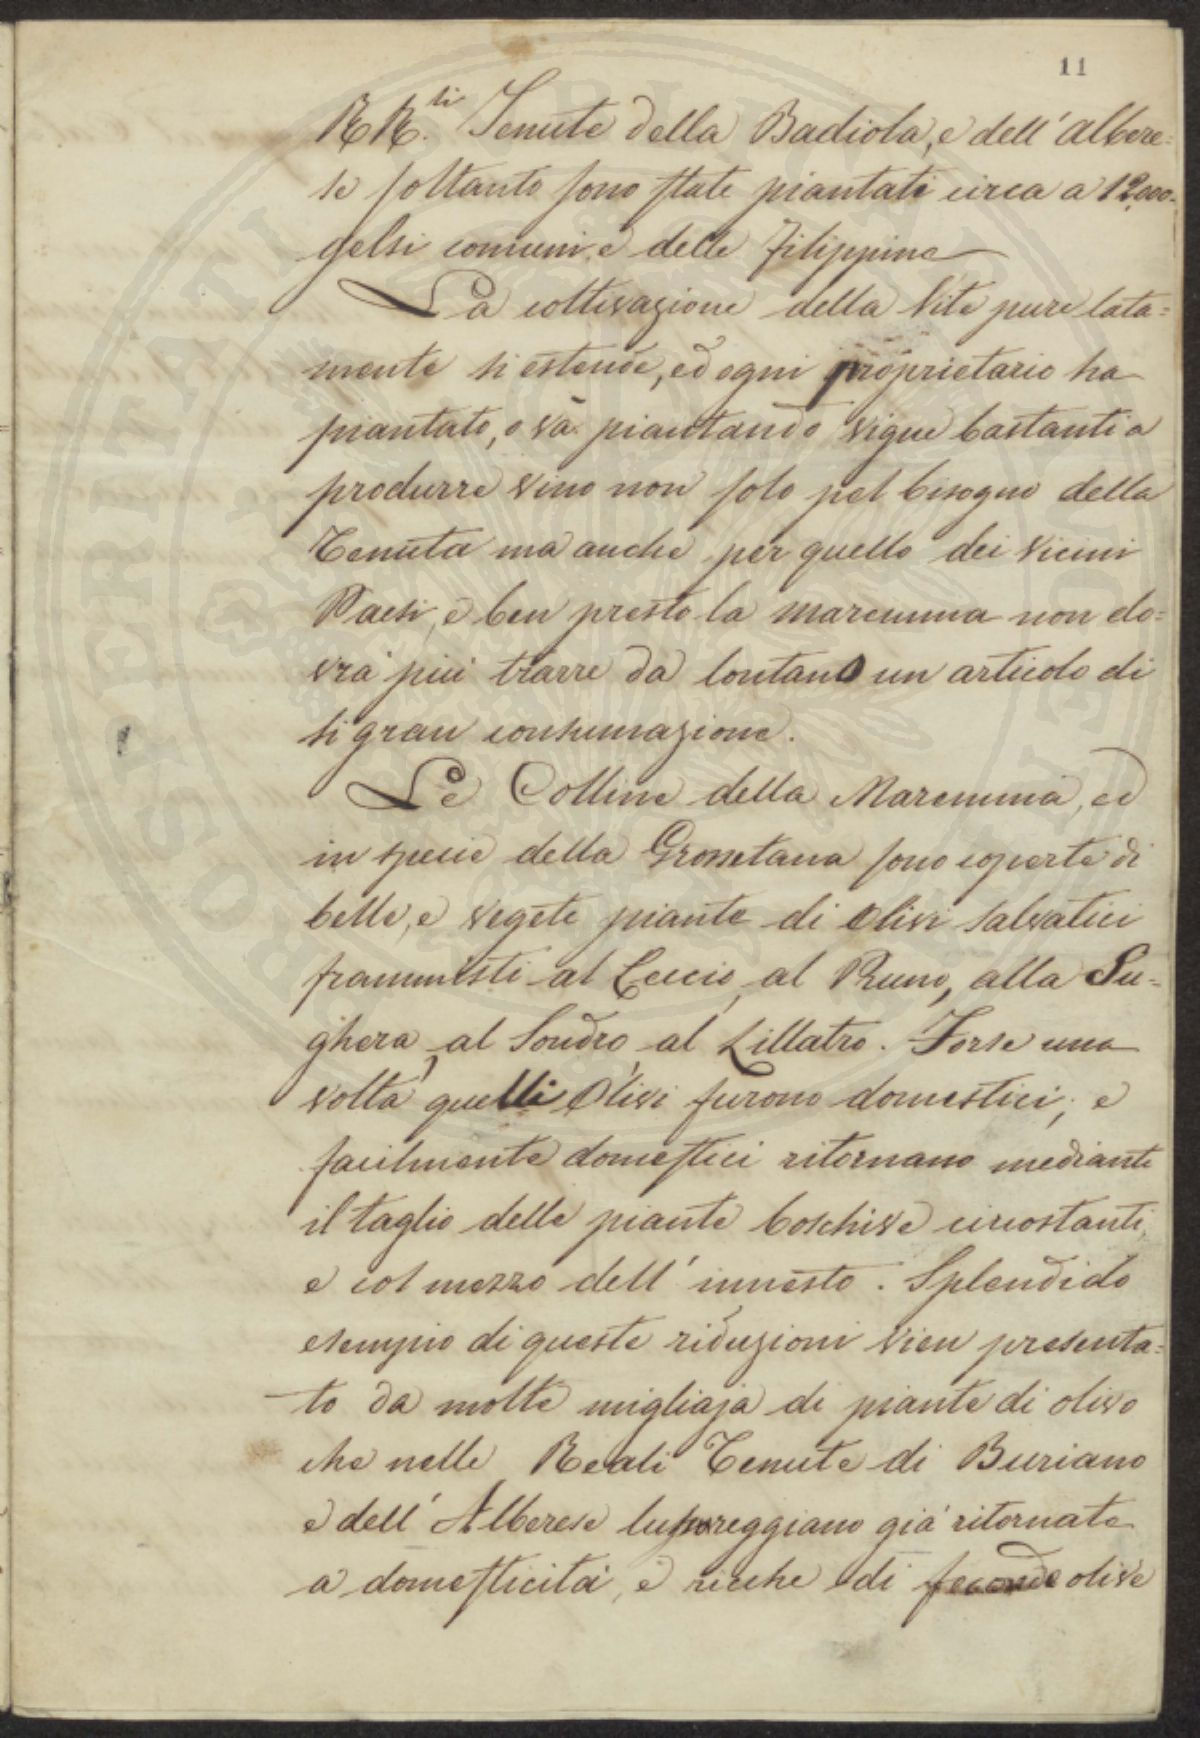 11
RR.ti Tenute della Badiola, e dell' Albere=
se soltanto sono state piantati circa a 12,000.
gelsi comuni, e delle Filippine
La coltivazione della Vite pure lata=
mente si estende, ed ogni proprietario ha
piantato, o và piantando vigne bastanti a
produrre vino non solo pel bisogno della
Tenuta ma anche per quello dei vicini
Paesi, e ben presto la maremma non do=
vrà più trarre da lontano un articolo di
si gran consumazione.
Le Colline della Maremma, ed
in specie della Grossetana sono coperte di
belle, e vegete piante di olivi salvatici
frammisti al Leccio, al Pruno, alla Su=
ghera, al Sondro, al Lillatro. Forse una
volta quelli Olivi furono domestici, e
facilmente domestici ritornano mediante
il taglio delle piante boschive circostanti,
e col mezzo dell' innesto. Splendido
esempio di queste riduzioni vien presenta=
to da molte migliaja di piante di olivo
che nelle Reali Tenute di Buriano
e dell' Alberese lussureggiano già ritornate
a domesticità, e ricche di feconde olive